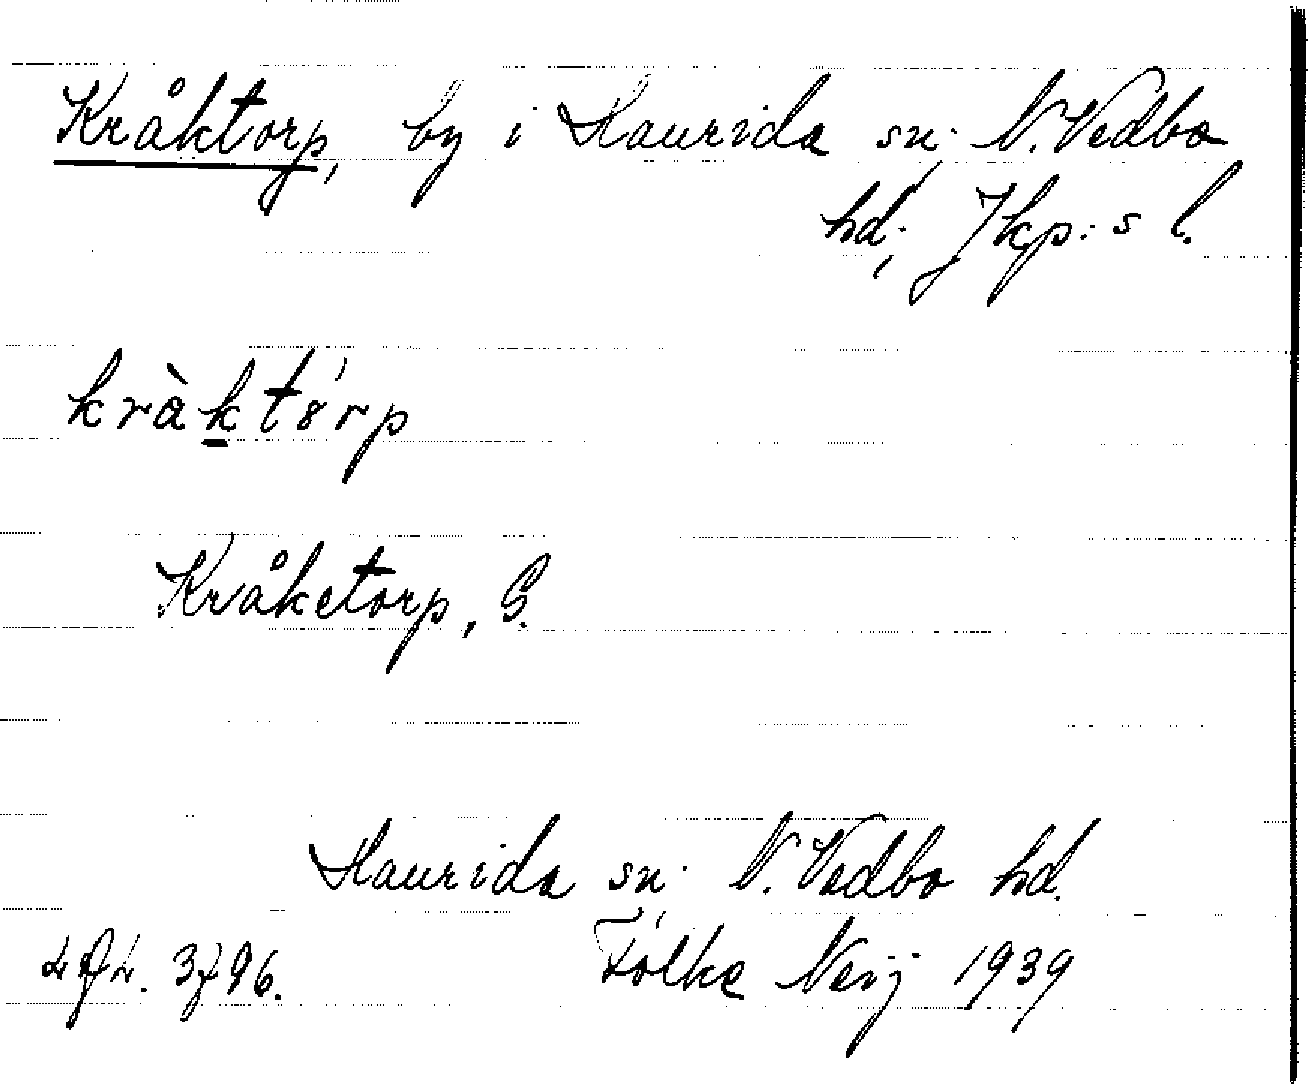 Kråktorp, by i Haurida sn. N. Vedbo
hd., Jkp:s l.
kràktórp
Kråketorp, G.
Haurida sn. N. Vedbo hd.
3796. Folke Neij 1939